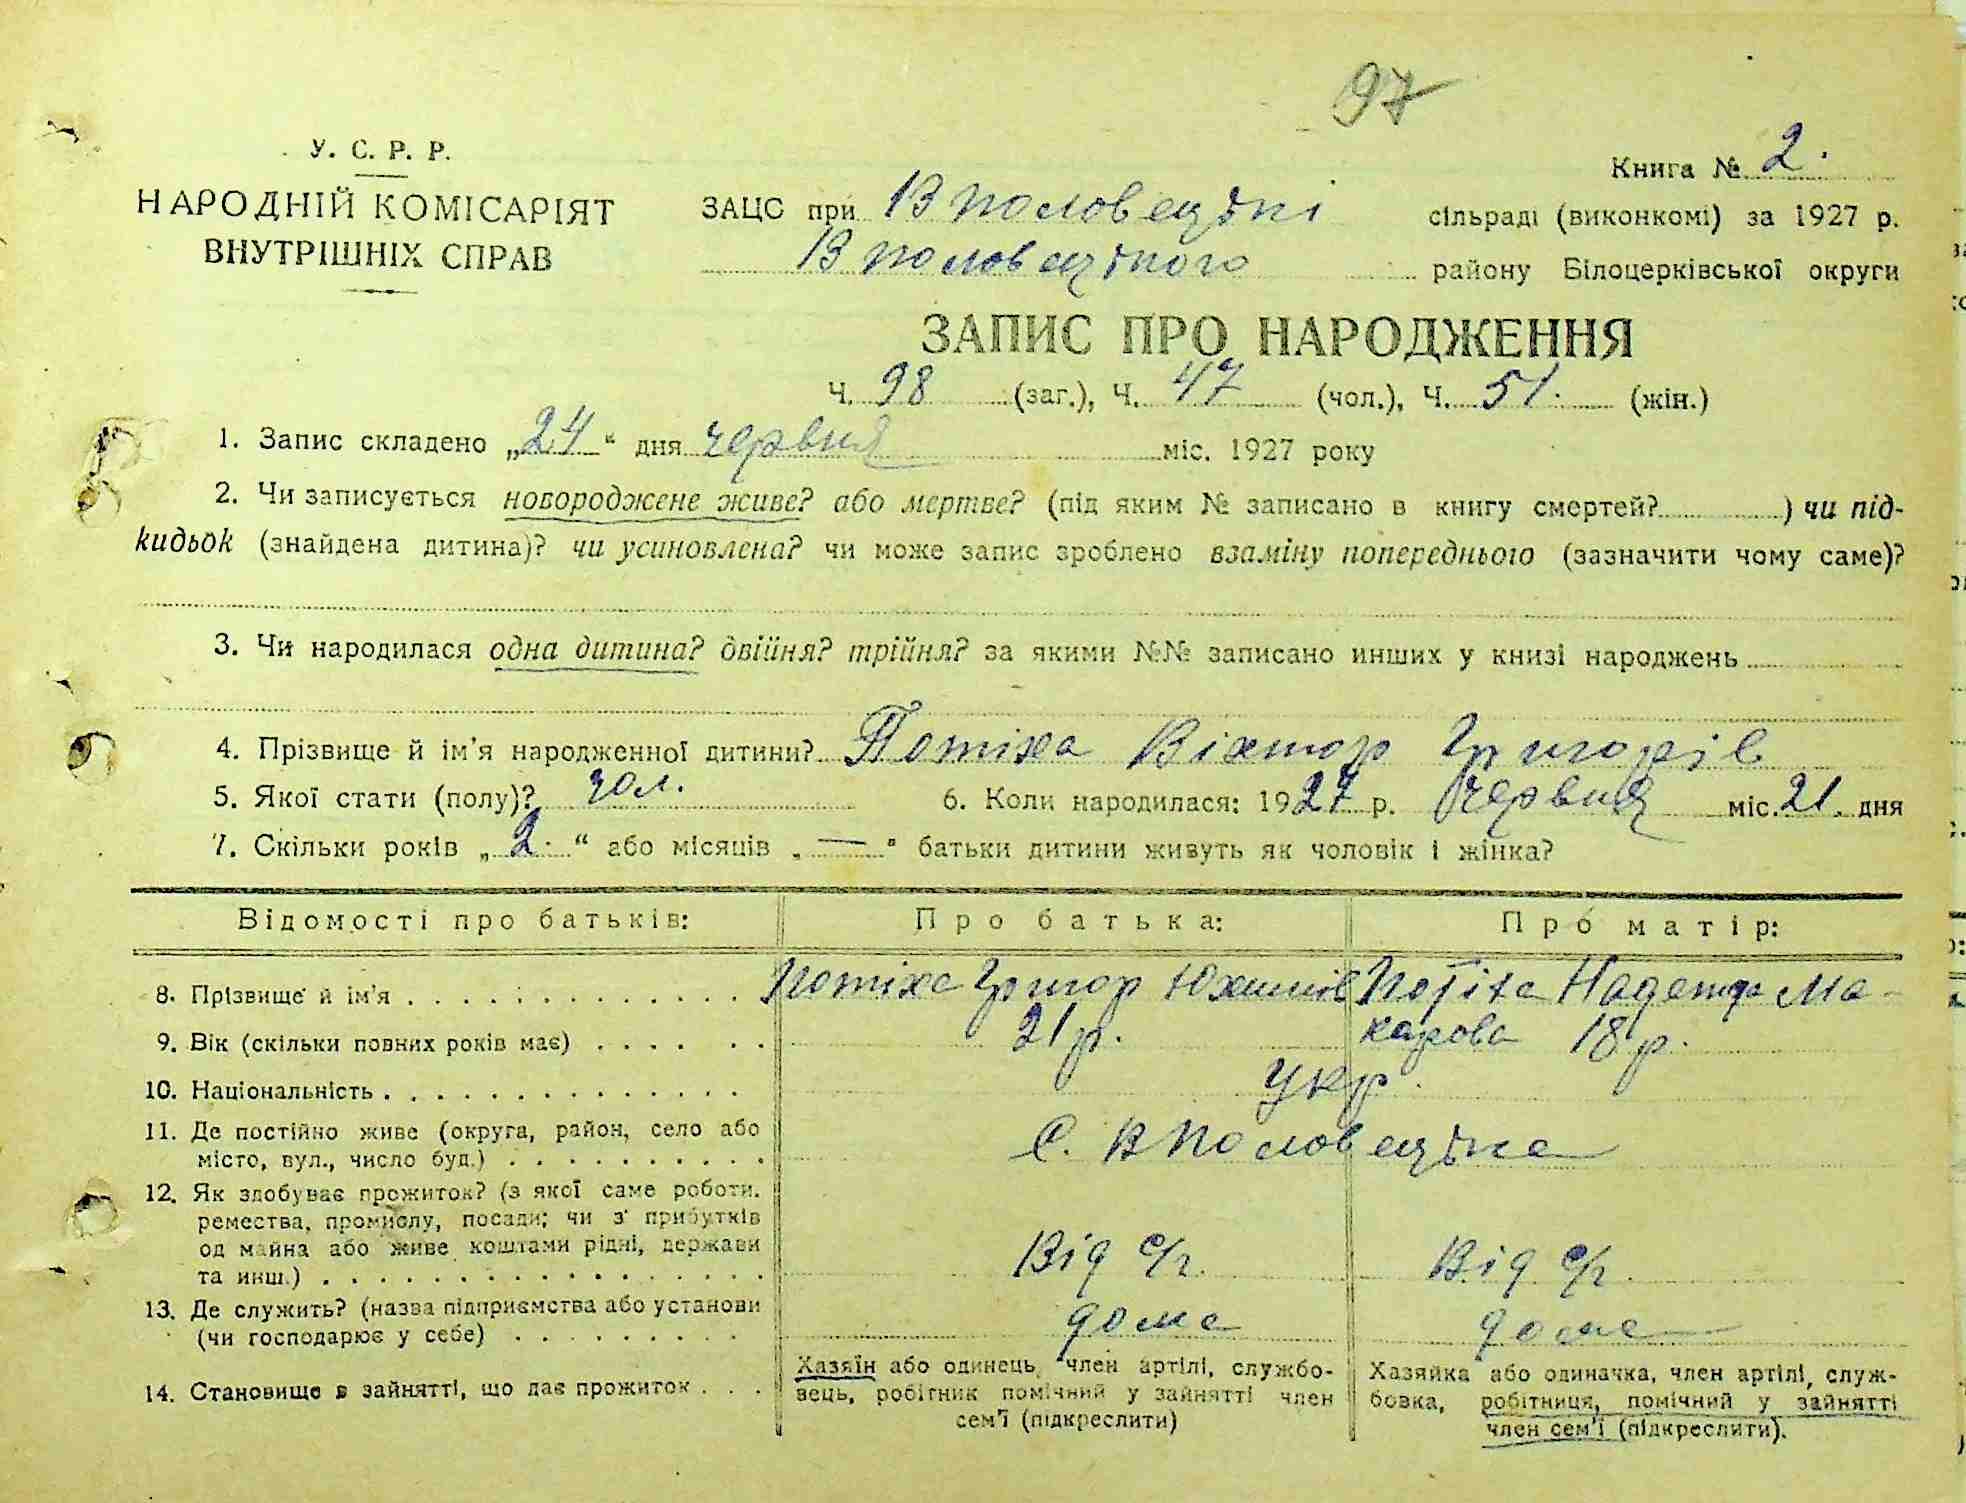 97
У. С. Р. Р.
НАРОДНІЙ КОМІСАРІЯТ
ВНУТРІШНІХ СПРАВ
Книга № 2.
ЗАЦС при В Половецькі сільраді (виконкомі) за 1927 р.
В Половецького району Білоцерківської округи
ЗАПИС ПРО НАРОДЖЕННЯ
Ч. 98 (заг.), Ч. 47 (чол.), Ч. 51. (жін.)
1. Запис складено „24“ дня червня міс. 1927 року
2. Чи записується новороджене живе? або мертве? (під яким № записано в книгу смертей? ) чи під-
кидьок (знайдена дитина)? чи усиновлена? чи може запис зроблено взаміну попереднього (зазначити чому саме)?
3. Чи народилася одна дитина? двійня? трійня? за якими №№ записано инших у книзі народжень
4. Прізвище й ім'я народженної дитини? Потіха Віктор Григорів
5. Якої стати (полу)? чол. 6. Коли народилася: 1927 р. червня міс. 21. дня
7. Скільки років „2.“ або місяців „—“ батьки дитини живуть як чоловік і жінка?
Відомості про батьків: Про батька: Про матір:
8. Прізвище й ім'я Потіха Григор Юхимів Потіха Надежда Ма-
9. Вік (скільки повних років має) 21 р. карова 18 р.
10. Національність Укр.
11. Де постійно живе (округа, район, село або
місто, вул., число буд.) С. В Половецьке
12. Як здобуває прожиток? (з якої саме роботи,
ремества, промислу, посади; чи з прибутків
од майна або живе коштами рідні, держави
та инш.) Від с/г. Від с/г.
13. Де служить? (назва підприємства або установи
(чи господарює у себе) дома дома
14. Становище в зайнятті, що дає прожиток
Хазяїн або одинець, член артілі, службо-
вець, робітник помічний у зайнятті член
сем'ї (підкреслити)
Хазяйка або одиначка, член артілі, служ-
бовка, робітниця, помічний у зайнятті
член сем'ї (підкреслити).